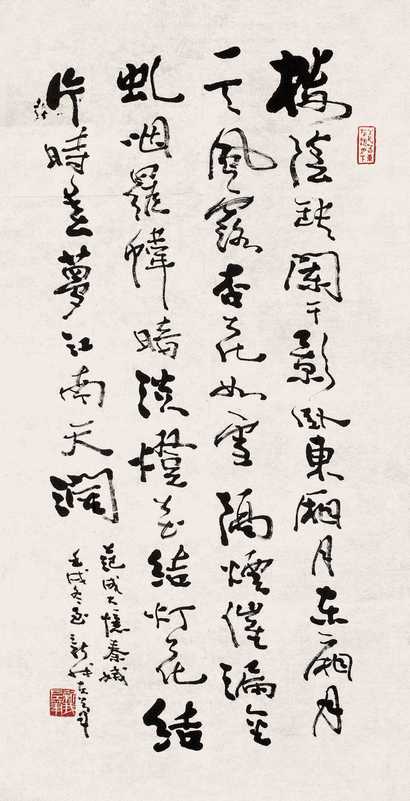 樓陰缺闌干影臥東廂月东廂月
一天風露杏花如雪隔煙催漏金
虬咽羅幃暗淡燈花結灯花結
片時春夢江南天濶
范成大憶秦娥
壬戌冬至新我左筆